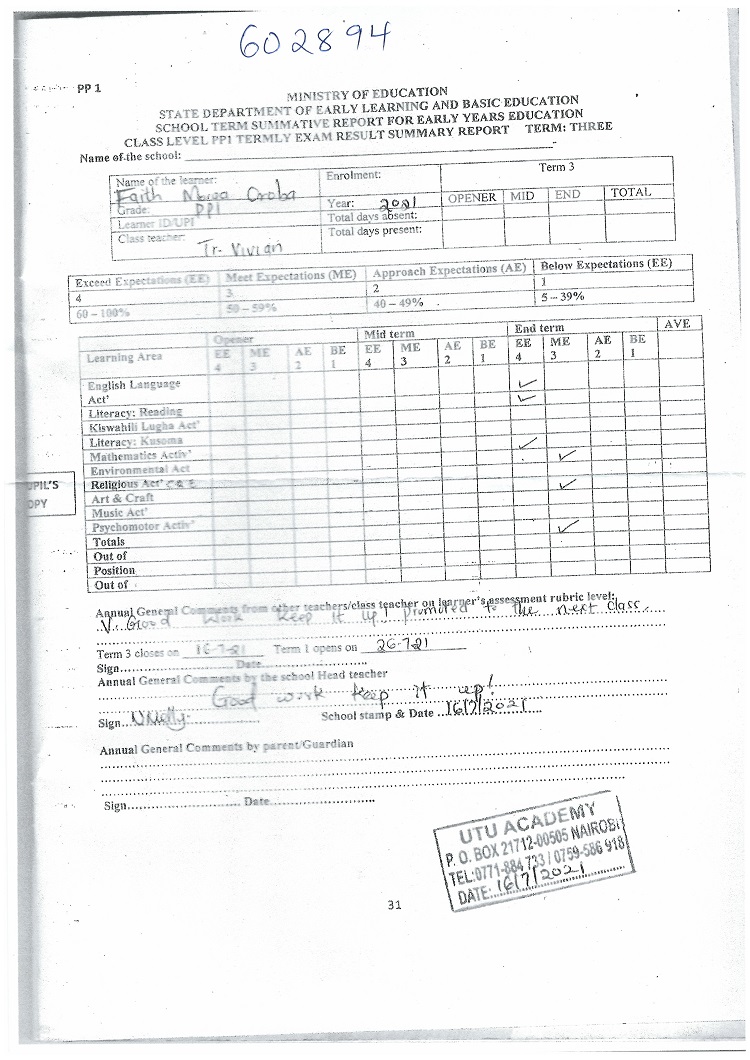 602894
PP 1
MINISTRY OF EDUCATION
STATE DEPARTMENT OF EARLY LEARNING AND BASIC EDUCATION
SCHOOL TERM SUMMATIVE REPORT FOR EARLY YEARS EDUCATION
CLASS LEVEL PP1 TERMLY EXAM RESULT SUMMARY REPORT TERM: THREE
Name of the school:
Name of the learner: Enrolment: Term 3
Faith Moraa Oroba
Grade: PP1 Year: 2021 OPENER MID END TOTAL
Learner ID/UPI Total days absent:
Class teacher: Tr. Vivian Total days present:
Exceed Expectations (EE) Meet Expectations (ME) Approach Expectations (AE) Below Expectations (EE)
4 3 2 1
60 – 100% 50 – 59% 40 – 49% 5 – 39%
Opener Mid term End term AVE
Learning Area EE ME AE BE EE ME AE BE EE ME AE BE
4 3 2 1 4 3 2 1 4 3 2 1
English Language ✓
Act' ✓
Literacy: Reading
Kiswahili Lugha Act'
Literacy: Kusoma ✓
Mathematics Activ' ✓
Environmental Act
Religious Act' C R E ✓
Art & Craft
Music Act'
Psychomotor Activ' ✓
Totals
Out of
Position
Out of
PUPIL'S
COPY
Annual General Comments from other teachers/class teacher on learner's assessment rubric level:
V. Good Work Keep it up! promoted to the next class.
Term 3 closes on 16-7-21 Term 1 opens on 26-7-21
Sign Date
Annual General Comments by the school Head teacher
Good work keep it up!
Sign School stamp & Date 16/7/2021
Annual General Comments by parent/Guardian
Sign Date
UTU ACADEMY
P. O. BOX 21712-00505 NAIROBI
TEL:0771-884 733 / 0759-586 918
DATE: 16/7/2021
31